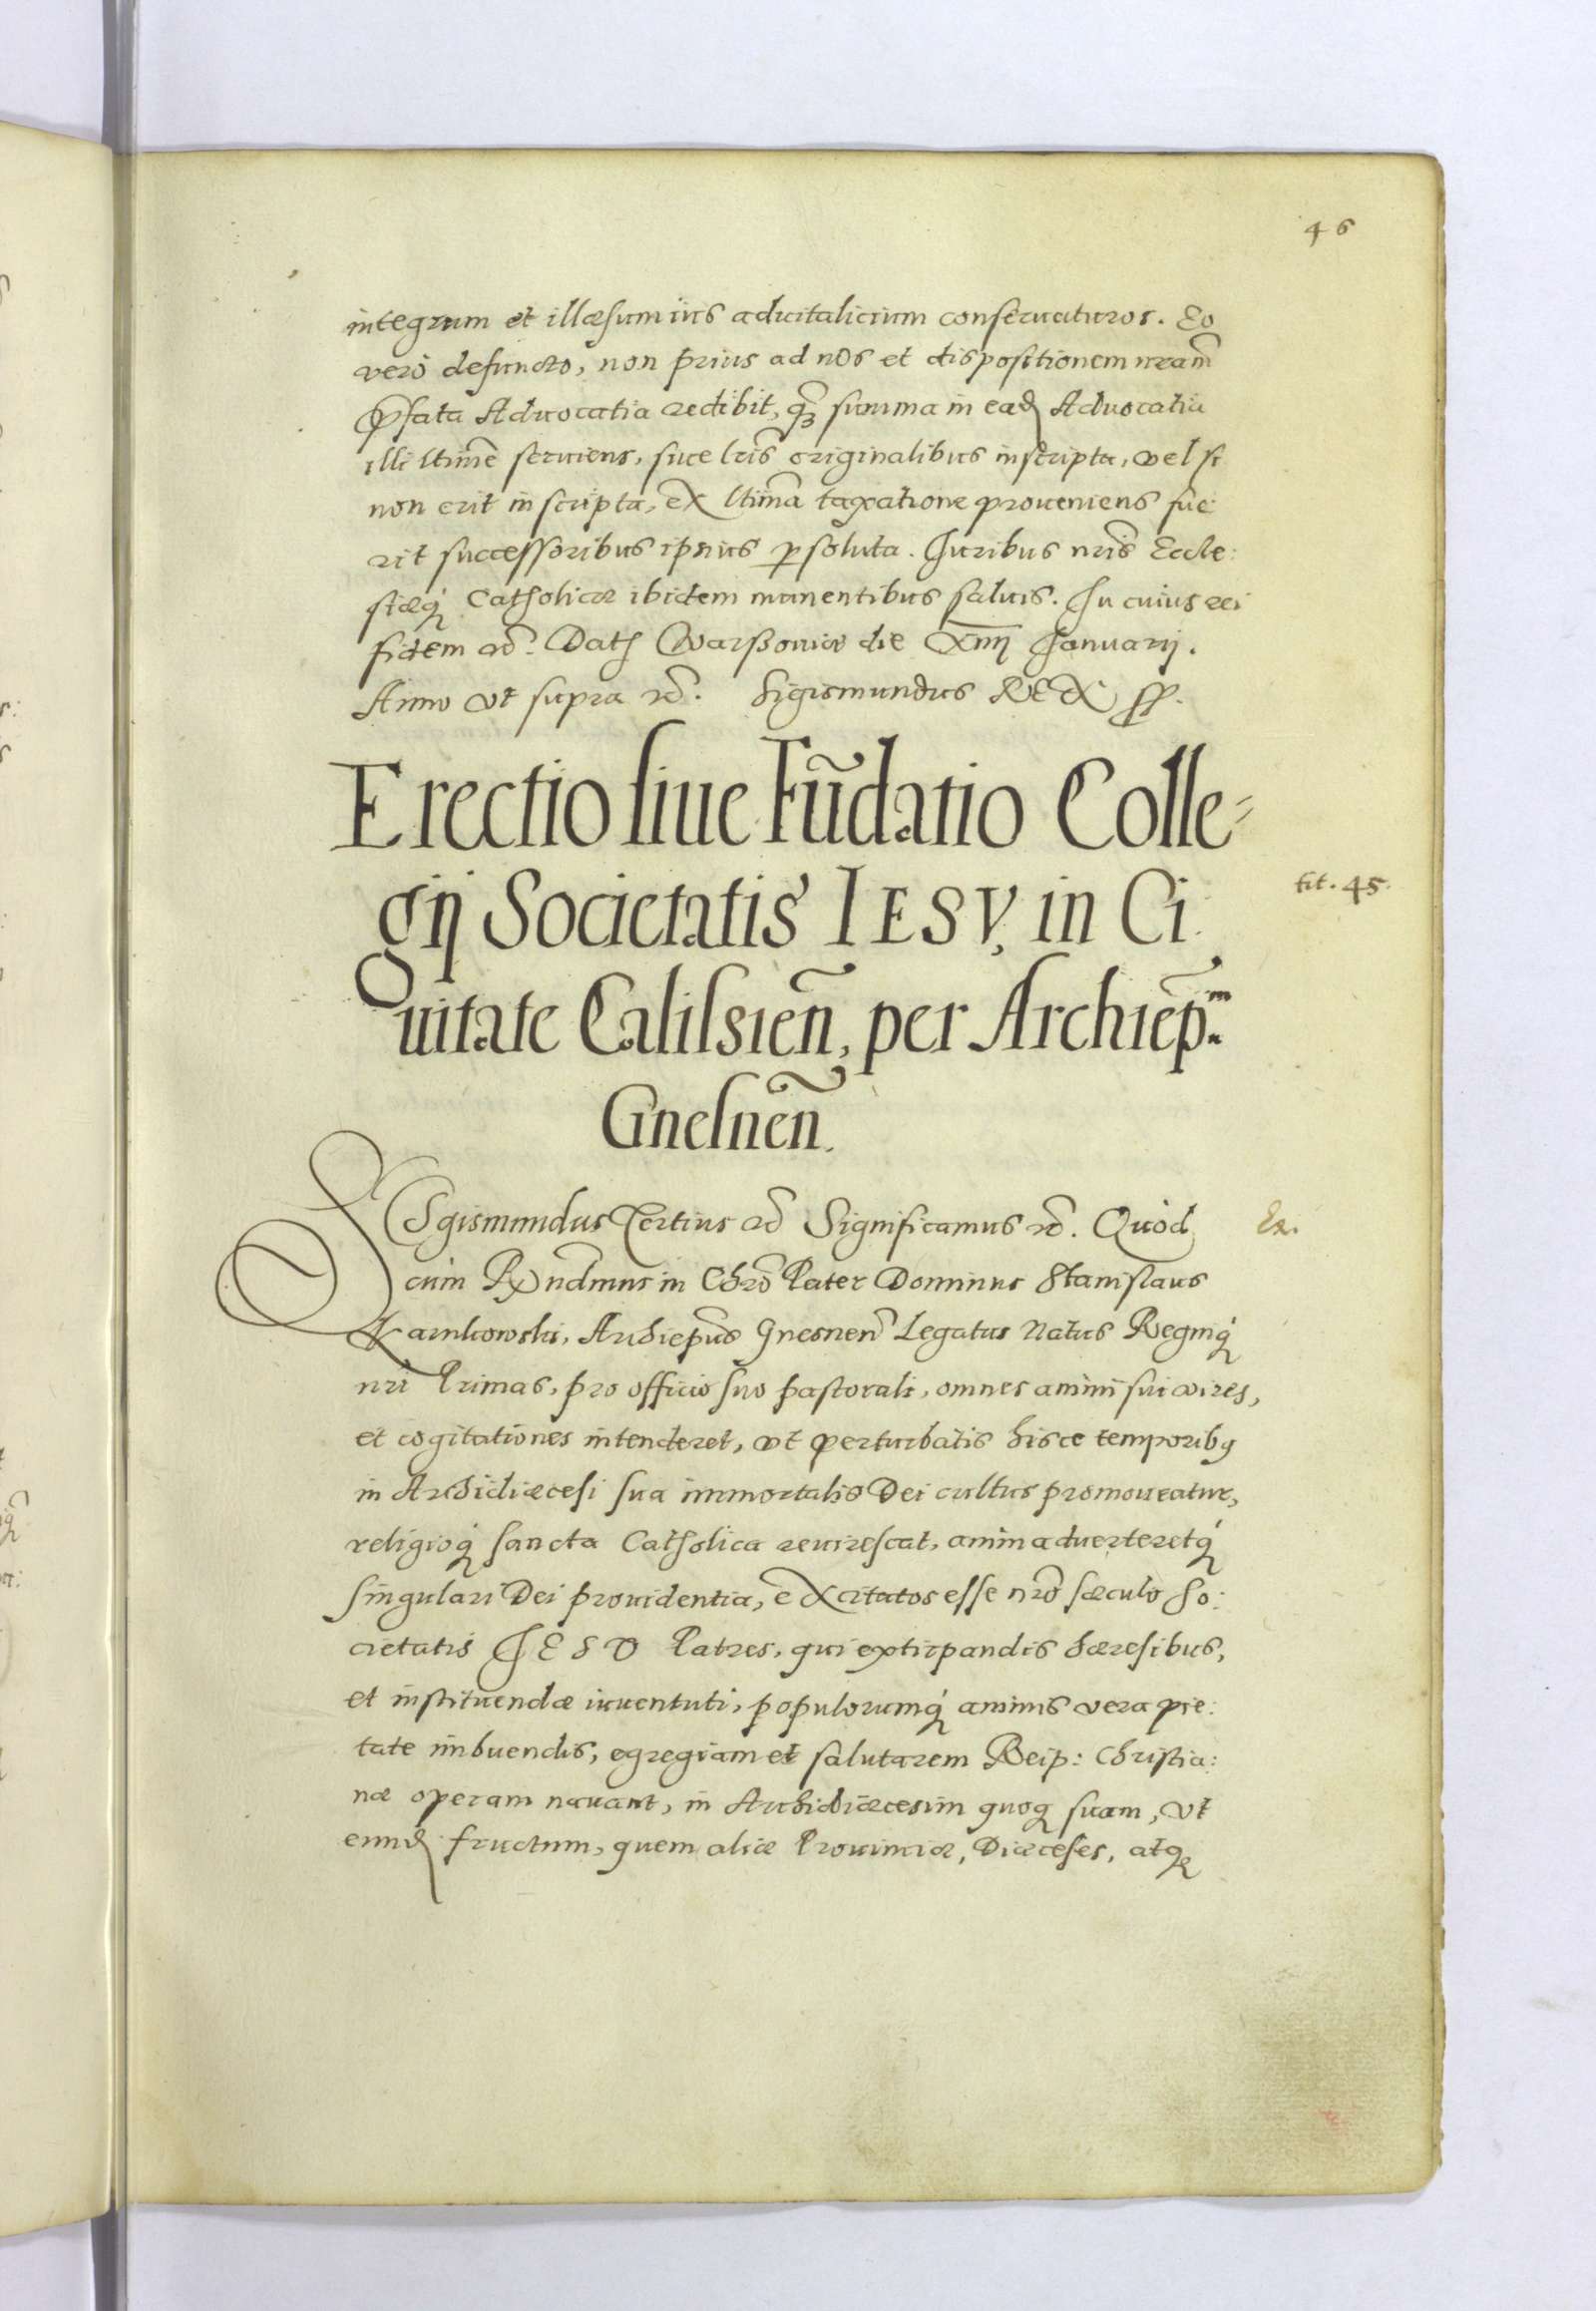 46
integrum et illæsum ius aduitalicium conseruaturos. Eo
verò defuncto, non prius ad nos et dispositionem nr̃am
p̃fata Aduocatia redibit, quã summa in ead. Aduocatia
illi ltimẽ seruiens, siue lr̃is originalibus inscripta, vel si
non erit inscripta, ex ltima taxatione proueniens fue:
rit successoribus ipsius ꝑsoluta. Juribus nr̃is Eccle:
siæq́ꝫ Catholicæ ibidem manentibus saluis. In cuius rei
fidem ꝛc̃. Dat. Warssouiæ die XIIII Januarij.
Anno vt supra ꝛc̃. Sigismundus REX ss.
Erectio siue Fũdatio Colle-
gij Societatis IESV, in Ci
tit. 45.
uitate Calissieñ, per Archiep̃m
Gnesneñ.
SIgismundus Tertius ꝛc̃ Significamus ꝛc̃. Quòd
Ex.
cùm Rẽndmus in Chrõ Pater Dominus Stanislaus
Karnkowski, Archiep̃us Gnesneñ Legatus Natus Regniq́ꝫ
nri Primas, pro officio suo pastorali, omnes animi sui vires,
et cogitationes intenderet, vt perturbatis hisce temporibꝰ
in Archidiæcesi sua immortalis Dei cultus promoueatur,
religioq́ꝫ sancta Catholica reuirescat, animaduerteretq́ꝫ
singulari Dei prouidentia, excitatos esse nrõ sæculo So:
cietatis IESV Patres, qui extirpandis hæresibus,
et instituendæ iuuentuti, populorumq́ꝫ animis vera pie:
tate imbuendis, egregiam et salutarem Reip: Christia:
næ operam nauant, in Archidiæcesim quoqꝫ suam, vt
eund. fructum, quem aliæ Prouinciæ, Diæceses, atqꝫ